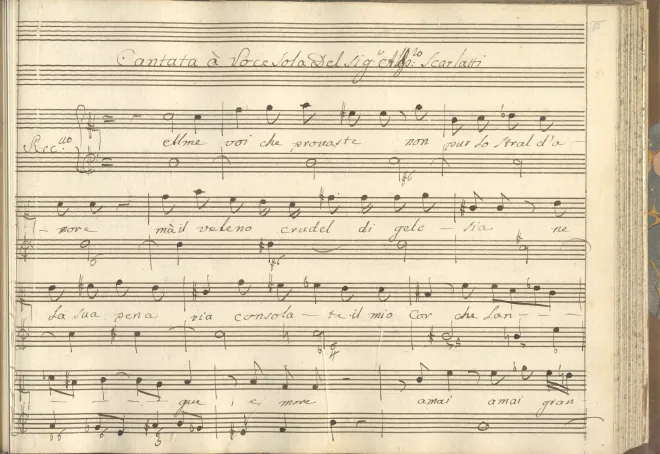 75
Cantata à Voce sola Del Sig.r Aless.dro Scarlatti
Rec.vo
Alme voi che provaste non pur lo stral d'a-
- more mà il veleno crudel di gelo - sia ne
la sua pena ria consola - te il mio cor che Lan - - -
- - - - gue, e more amai amai gran